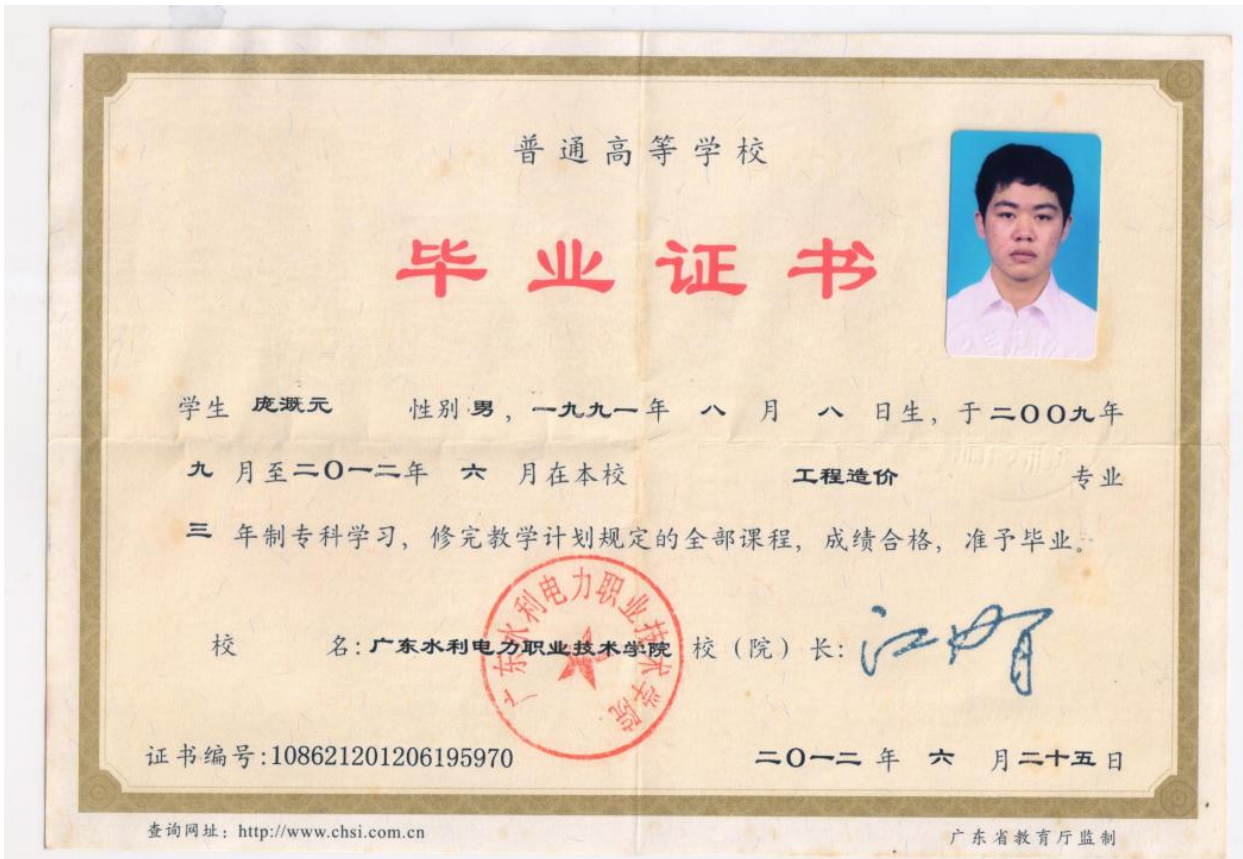 普通高等学校
毕业证书
学生 庞溉元 性别 男，一九九一年 八 月 八 日生，于二〇〇九年
九 月至二〇一二年 六 月在本校 工程造价 专业
三 年制专科学习，修完教学计划规定的全部课程，成绩合格，准予毕业。
校 名：广东水利电力职业技术学院 校（院）长：
广东水利电力职业技术学院
证书编号：108621201206195970 二〇一二 年 六 月二十五日
查询网址：http://www.chsi.com.cn 广东省教育厅监制